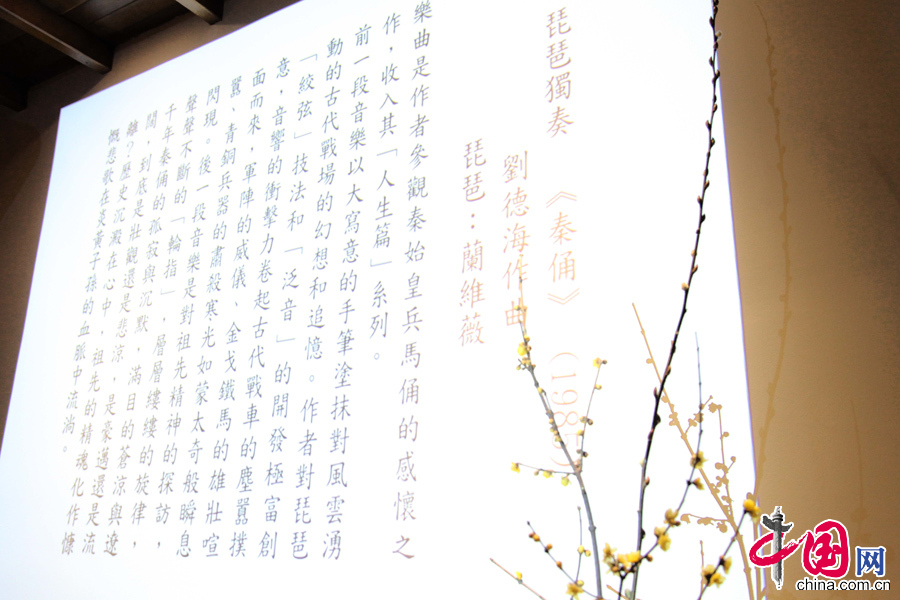 琵琶獨奏 《秦俑》 (198
劉德海作曲
琵琶：蘭維薇
樂曲是作者參觀秦始皇兵馬俑的感懷之
作，收入其「人生篇」系列。
前一段音樂以大寫意的手筆塗抹對風雲湧
動的古代戰場的幻想和追憶。作者對琵琶
「絞弦」技法和「泛音」的開發極富創
意，音響的衝擊力卷起古代戰車的塵囂撲
面而來，軍陣的威儀、金戈鐵馬的雄壯喧
囂、青銅兵器的肅殺寒光如蒙太奇般瞬息
閃現。後一段音樂是對祖先精神的探訪，
聲聲不斷的「輪指」，層層縷縷的旋律，
千年秦俑的孤寂與沉默，滿目的蒼涼與遼
闊，到底是壯觀還是悲涼，是豪邁還是流
離？歷史沉澱在心中，祖先的精魂化作慷
慨悲歌在炎黃子孫的血脈中流淌。
中国网
china.com.cn